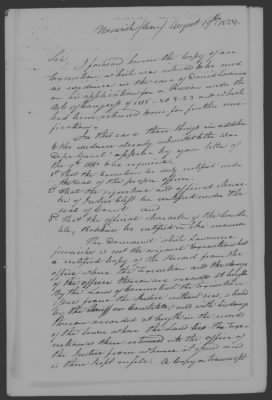 Norwich (Conn) August 19th 1833.
Sir,
I forward herein the Copy of an
Execution which was intended to be used
as evidence in the case of David Lawrence
on his application for a Pension under the
Acts of Congress of 1818 - 20 & 23 and which
had been returned home for further
In this case three things in addition
to the evidence already submitted to the
Department appear by your letter of
the 9th to be required
1st That the Execution be duly certified under
the seal of the proper officer.
2d That the signature and official
of Justice Cliff be certified under the
seal of County and
3d That the official character of the
be certified in like manner
The Document which Lawrence
is not the original Execution but
a certified Copy of the Record from the
office where the Execution and the doings
of the officer thereon are recorded at length
By the Laws of Connecticut the Execution
from the Justice without seal, is
by the Sheriff or Constable, and with his doings
thereon recorded at length in the records
of the town where the Land lies. The
is then returned to the office of
the Justice from whence it issued and
is there kept on file. A Copy or transcript